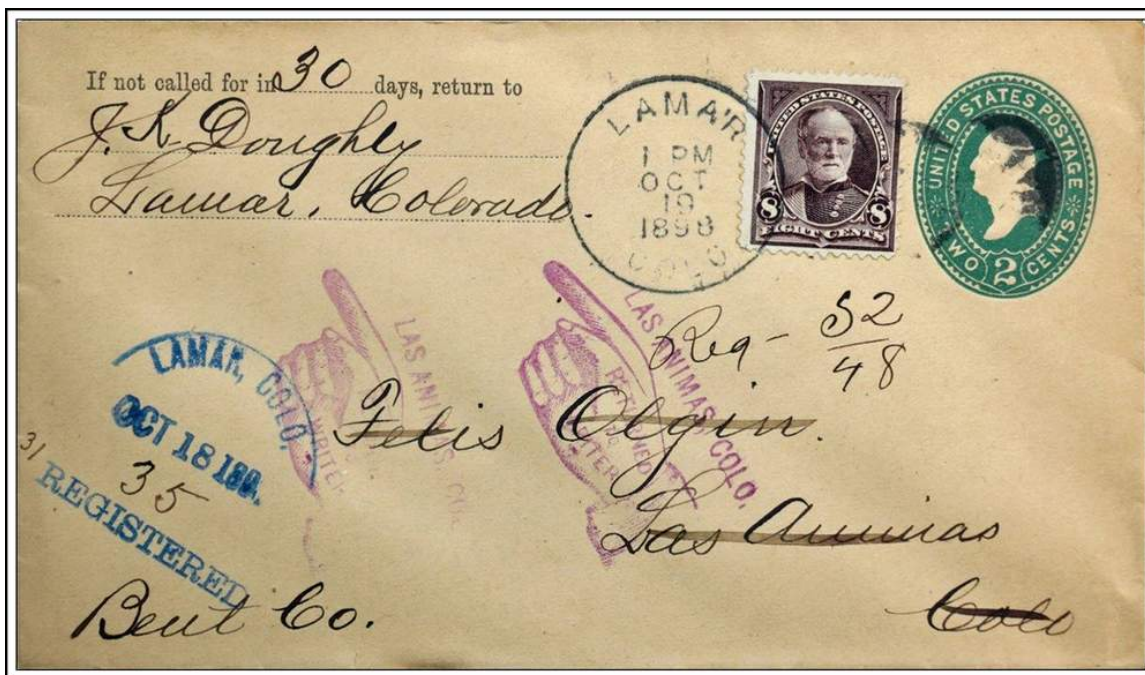 If not called for in 30 days, return to
J. K. Doughly
Lamar, Colorado.
LAMAR
1 PM
OCT
19
1898
COLO
UNITED STATES POSTAGE
8 8
EIGHT CENTS
UNITED STATES POSTAGE
TWO 2 CENTS
Reg- 52
48
LAS ANIMAS, COLO.
RETURNED
TO
WRITER
LAS ANIMAS, CO
WRITER
LAMAR, COLO.
OCT 18 189
31
35
REGISTERED
Felis Olgin.
Las Animas
Colo
Bent Co.